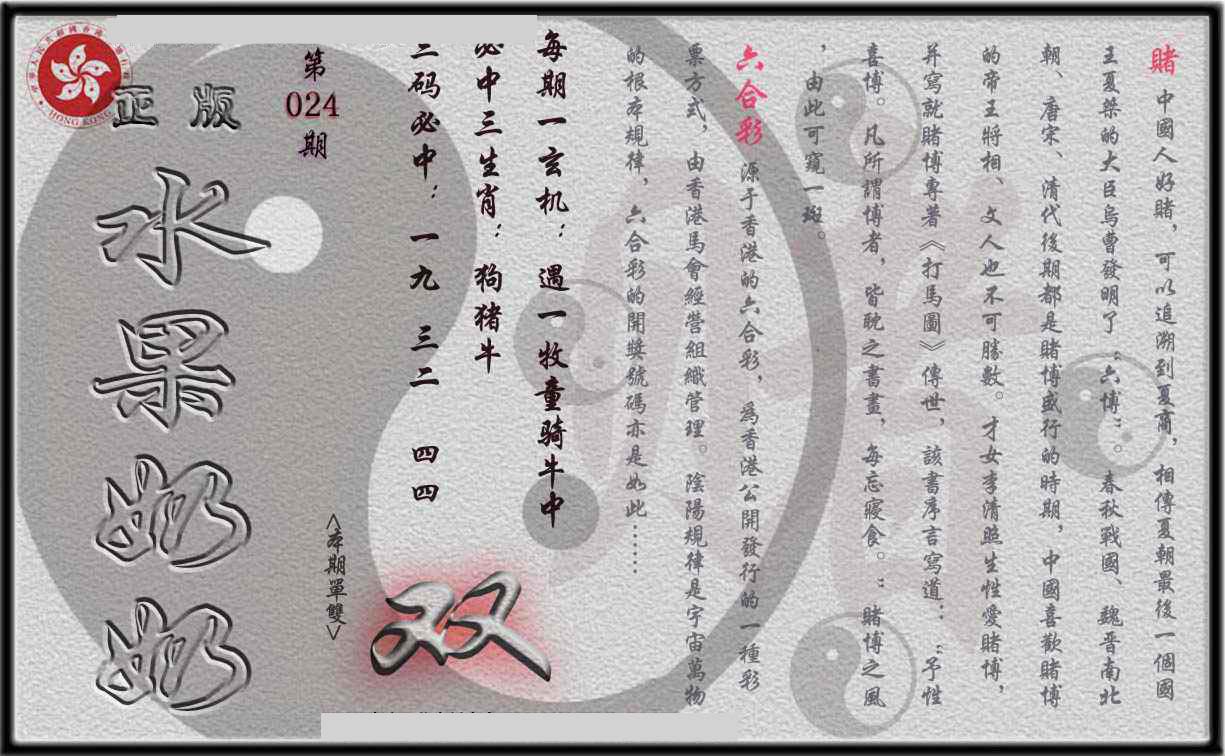 賭 中國人好賭，可以追溯到夏商，相傳夏朝最後一個國
王夏桀的大臣烏曹發明了“六博”。春秋戰國、魏晋南北
朝、唐宋、清代後期都是賭博盛行的時期，中國喜歡賭博
的帝王將相、文人也不可勝數。才女李清照生性愛賭博，
并寫就賭博專著《打馬圖》傳世，該書序言寫道：“予性
喜博。凡所謂博者，皆耽之書畫，每忘寢食。”賭博之風
，由此可窺一斑。
六合彩 源于香港的六合彩，為香港公開發行的一種彩
票方式，由香港馬會經營組織管理。陰陽規律是宇宙萬物
的根本規律，六合彩的開獎號碼亦是如此……
每期一玄机：遇一牧童骑牛中
必中三生肖：狗猪牛
三码必中：一九 三二 四四
<本期單雙>
双
第
024
期
正版
水果奶奶
HONG KONG